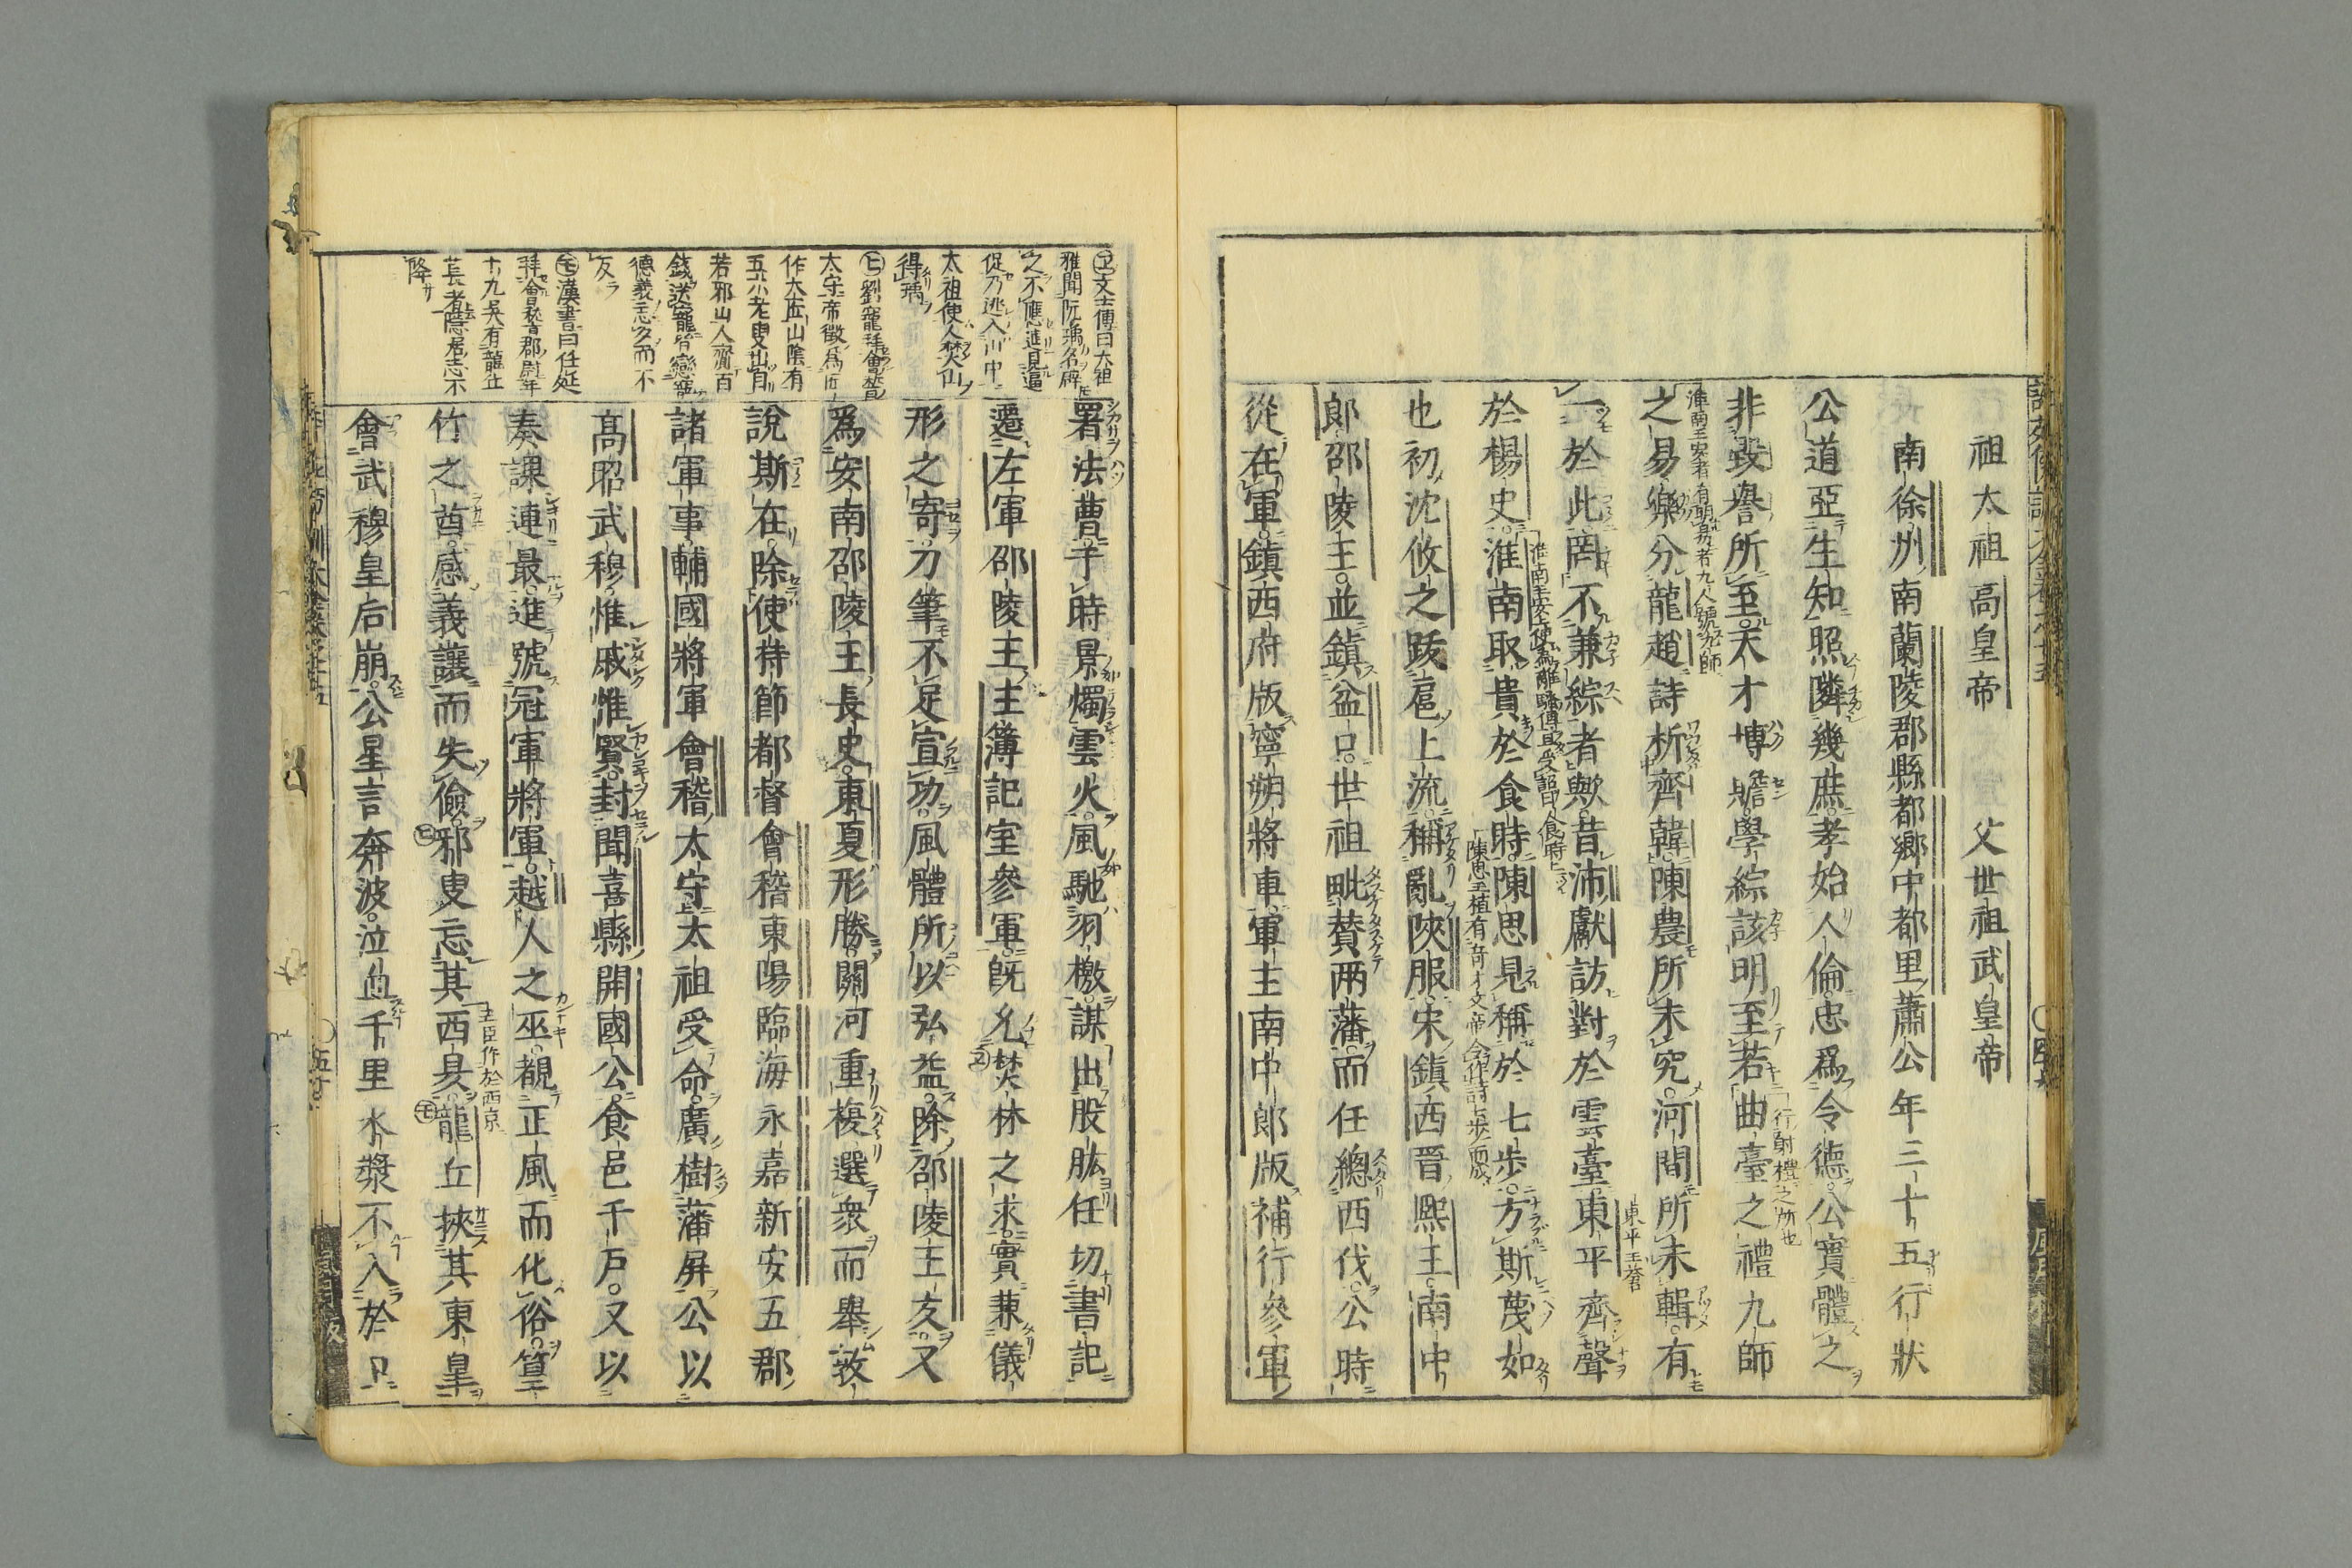 祖太祖高皇帝　父世祖武皇帝
南徐州南蘭陵郡縣都鄉中都里蕭公年三十五行狀
公道亞生知照隣幾庶孝始人倫忠爲令德公實體之
非毀譽所至天才博贍學綜該明至若曲臺之禮九師
行射禮之所也
之易樂分龍趙詩析齊韓陳農所未究河間所未輯有
淮南王安者有明易者九人號九師
一於此罔不兼綜者歟昔沛獻訪對於雲臺東平齊聲
東平王蒼
於楊史淮南取貴於食時陳思見稱於七步方斯蔑如
淮南王安上使爲離騷傳旦受詔日食時上
也初沈攸之跋扈上流稱亂陝服宋鎮西晉熙王南中
陳思王植有奇才文帝令作詩七步而成
郎邵陵王並鎮盆口世祖毗賛兩藩而任總西伐公時
從在軍鎮西府版寧朔將軍軍主南中郎版補行參軍
署法曹于時景燭雲火風馳羽檄謀出股肱任切書記
遷左軍邵陵王主簿記室參軍既允焚林之求實兼儀
形之寄刀筆不足宣功風體所以弘益除邵陵王友又
爲安南邵陵王長史東夏形勝關河重複選衆而舉敦
說斯在除使持節都督會稽東陽臨海永嘉新安五郡
諸軍事輔國將軍會稽太守太祖受命廣樹藩屏公以
高昭武穆惟戚惟賢封聞喜縣開國公食邑千戶又以
奏課連最進號冠軍將軍越人之巫覩正風而化俗篁
竹之酋感義讓而失儉邪叟忘其西昃龍丘狹其東皐
五臣作於西京
會武穆皇后崩公星言奔波泣血千里水漿不入於口
文士傳曰太祖
雅聞阮瑀名辟
之不應進見逼
促乃逃入山中
太祖使人焚山
得瑀
劉寵拜會稽
太守帝徵爲匠
作大匠山陰有
五六老叟出自
若邪山人齎百
錢送寵皆戀寵
德義志久而不
反
漢書曰任延
拜會稽郡尉年
十九吳有龍丘
萇者隱居志不
降